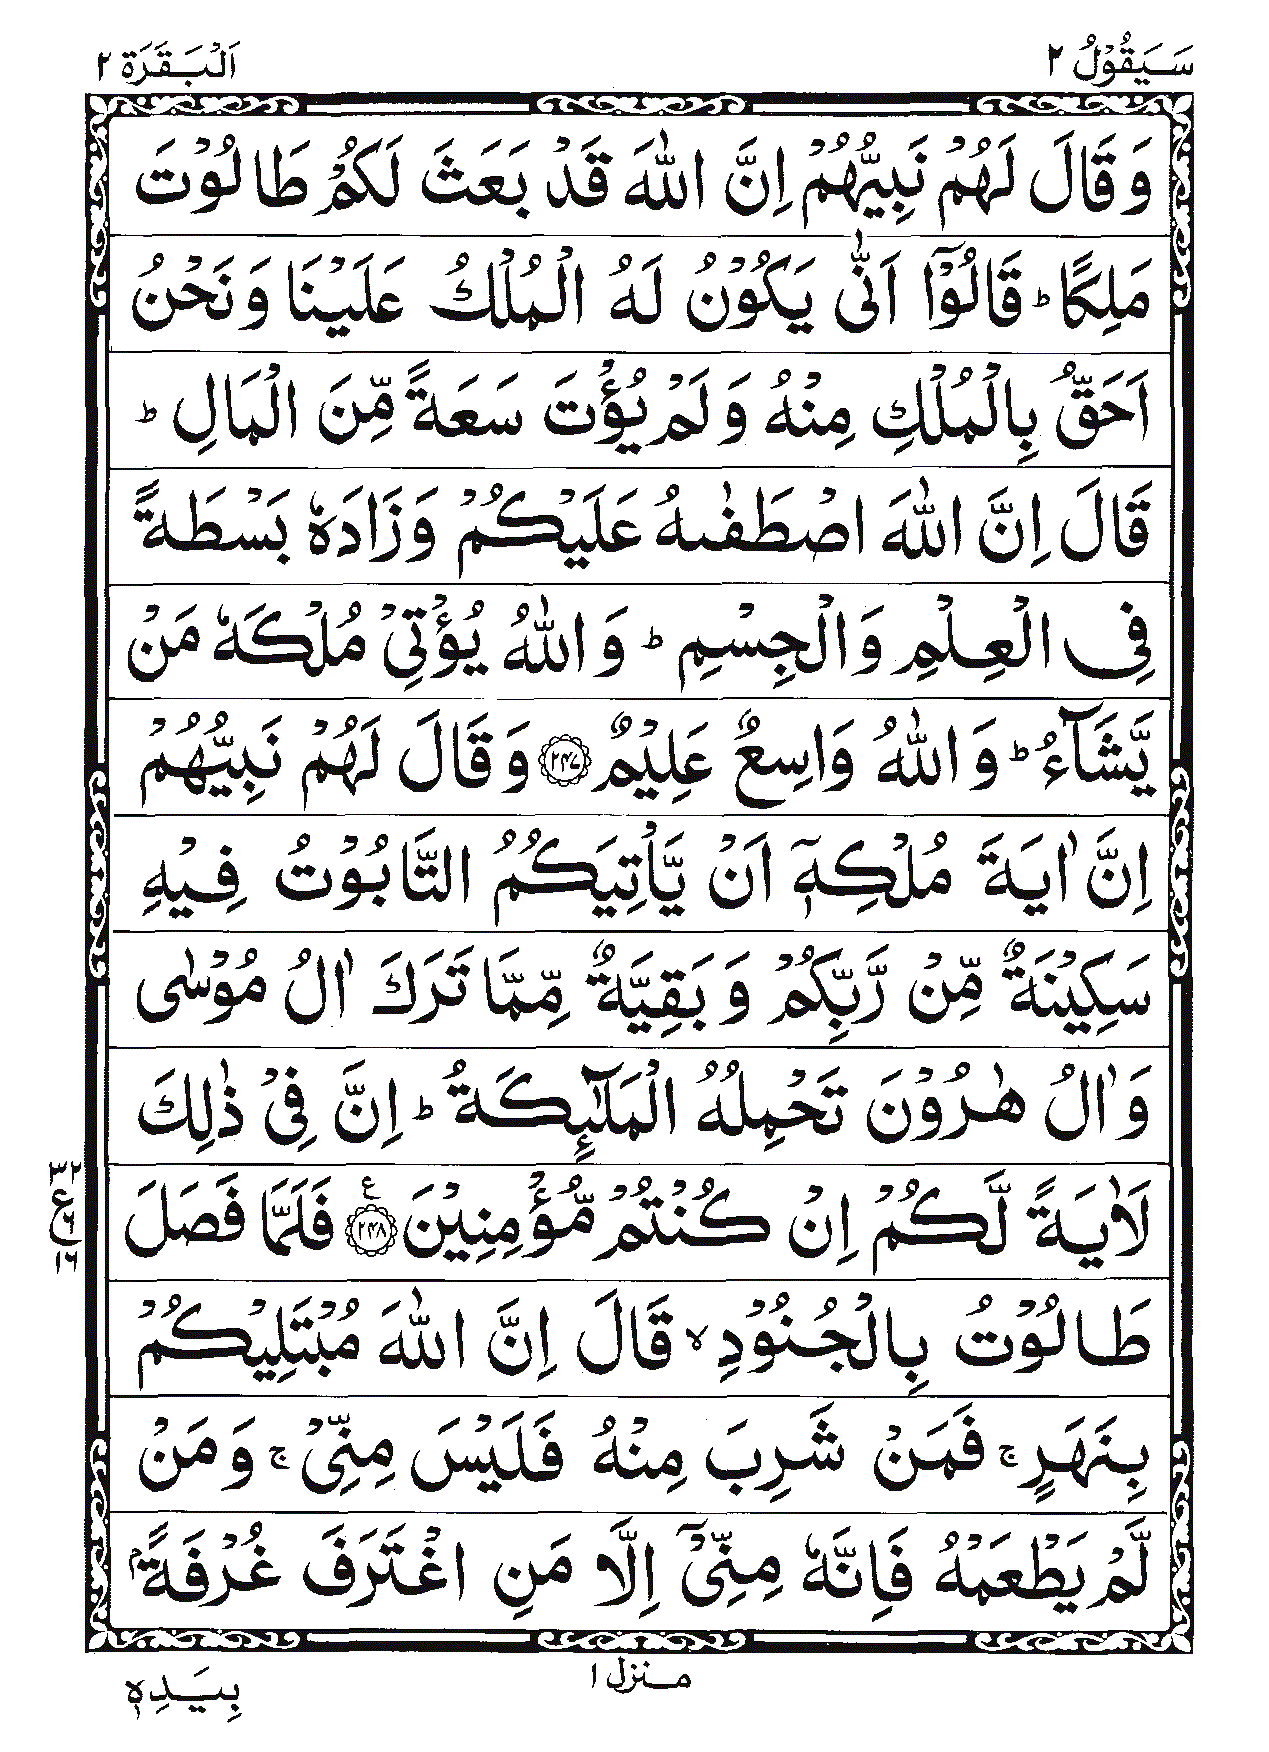 سَيَقُوْلُ ٢
اَلْبَقَرَة ٢
وَقَالَ لَهُمْ نَبِيُّهُمْ اِنَّ اللّٰهَ قَدْ بَعَثَ لَكُمْ طَالُوْتَ
مَلِكًا ؕ قَالُوْۤا اَنّٰى يَكُوْنُ لَهُ الْمُلْكُ عَلَيْنَا وَنَحْنُ
اَحَقُّ بِالْمُلْكِ مِنْهُ وَلَمْ يُؤْتَ سَعَةً مِّنَ الْمَالِ ؕ
قَالَ اِنَّ اللّٰهَ اصْطَفٰىهُ عَلَيْكُمْ وَزَادَهٗ بَسْطَةً
فِى الْعِلْمِ وَالْجِسْمِ ؕ وَاللّٰهُ يُؤْتِىْ مُلْكَهٗ مَنْ
يَّشَآءُ ؕ وَاللّٰهُ وَاسِعٌ عَلِيْمٌ ﴿۲۴۷﴾ وَقَالَ لَهُمْ نَبِيُّهُمْ
اِنَّ اٰيَةَ مُلْكِهٖۤ اَنْ يَّاْتِيَكُمُ التَّابُوْتُ فِيْهِ
سَكِيْنَةٌ مِّنْ رَّبِّكُمْ وَبَقِيَّةٌ مِّمَّا تَرَكَ اٰلُ مُوْسٰى
وَاٰلُ هٰرُوْنَ تَحْمِلُهُ الْمَلٰٓئِكَةُ ؕ اِنَّ فِىْ ذٰلِكَ
لَاٰيَةً لَّكُمْ اِنْ كُنْتُمْ مُّؤْمِنِيْنَ ﴿۲۴۸﴾ ع فَلَمَّا فَصَلَ
٣٢
ع
١٦
طَالُوْتُ بِالْجُنُوْدِ ۙ قَالَ اِنَّ اللّٰهَ مُبْتَلِيْكُمْ
بِنَهَرٍ ۚ فَمَنْ شَرِبَ مِنْهُ فَلَيْسَ مِنِّىْ ۚ وَمَنْ
لَّمْ يَطْعَمْهُ فَاِنَّهٗ مِنِّىْۤ اِلَّا مَنِ اغْتَرَفَ غُرْفَةًۢ
منزل ١
بِيَدِهٖ